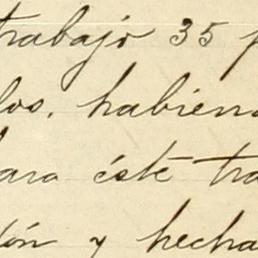 trabajo 35 p
los. habien
para éste tra
ión y hecha